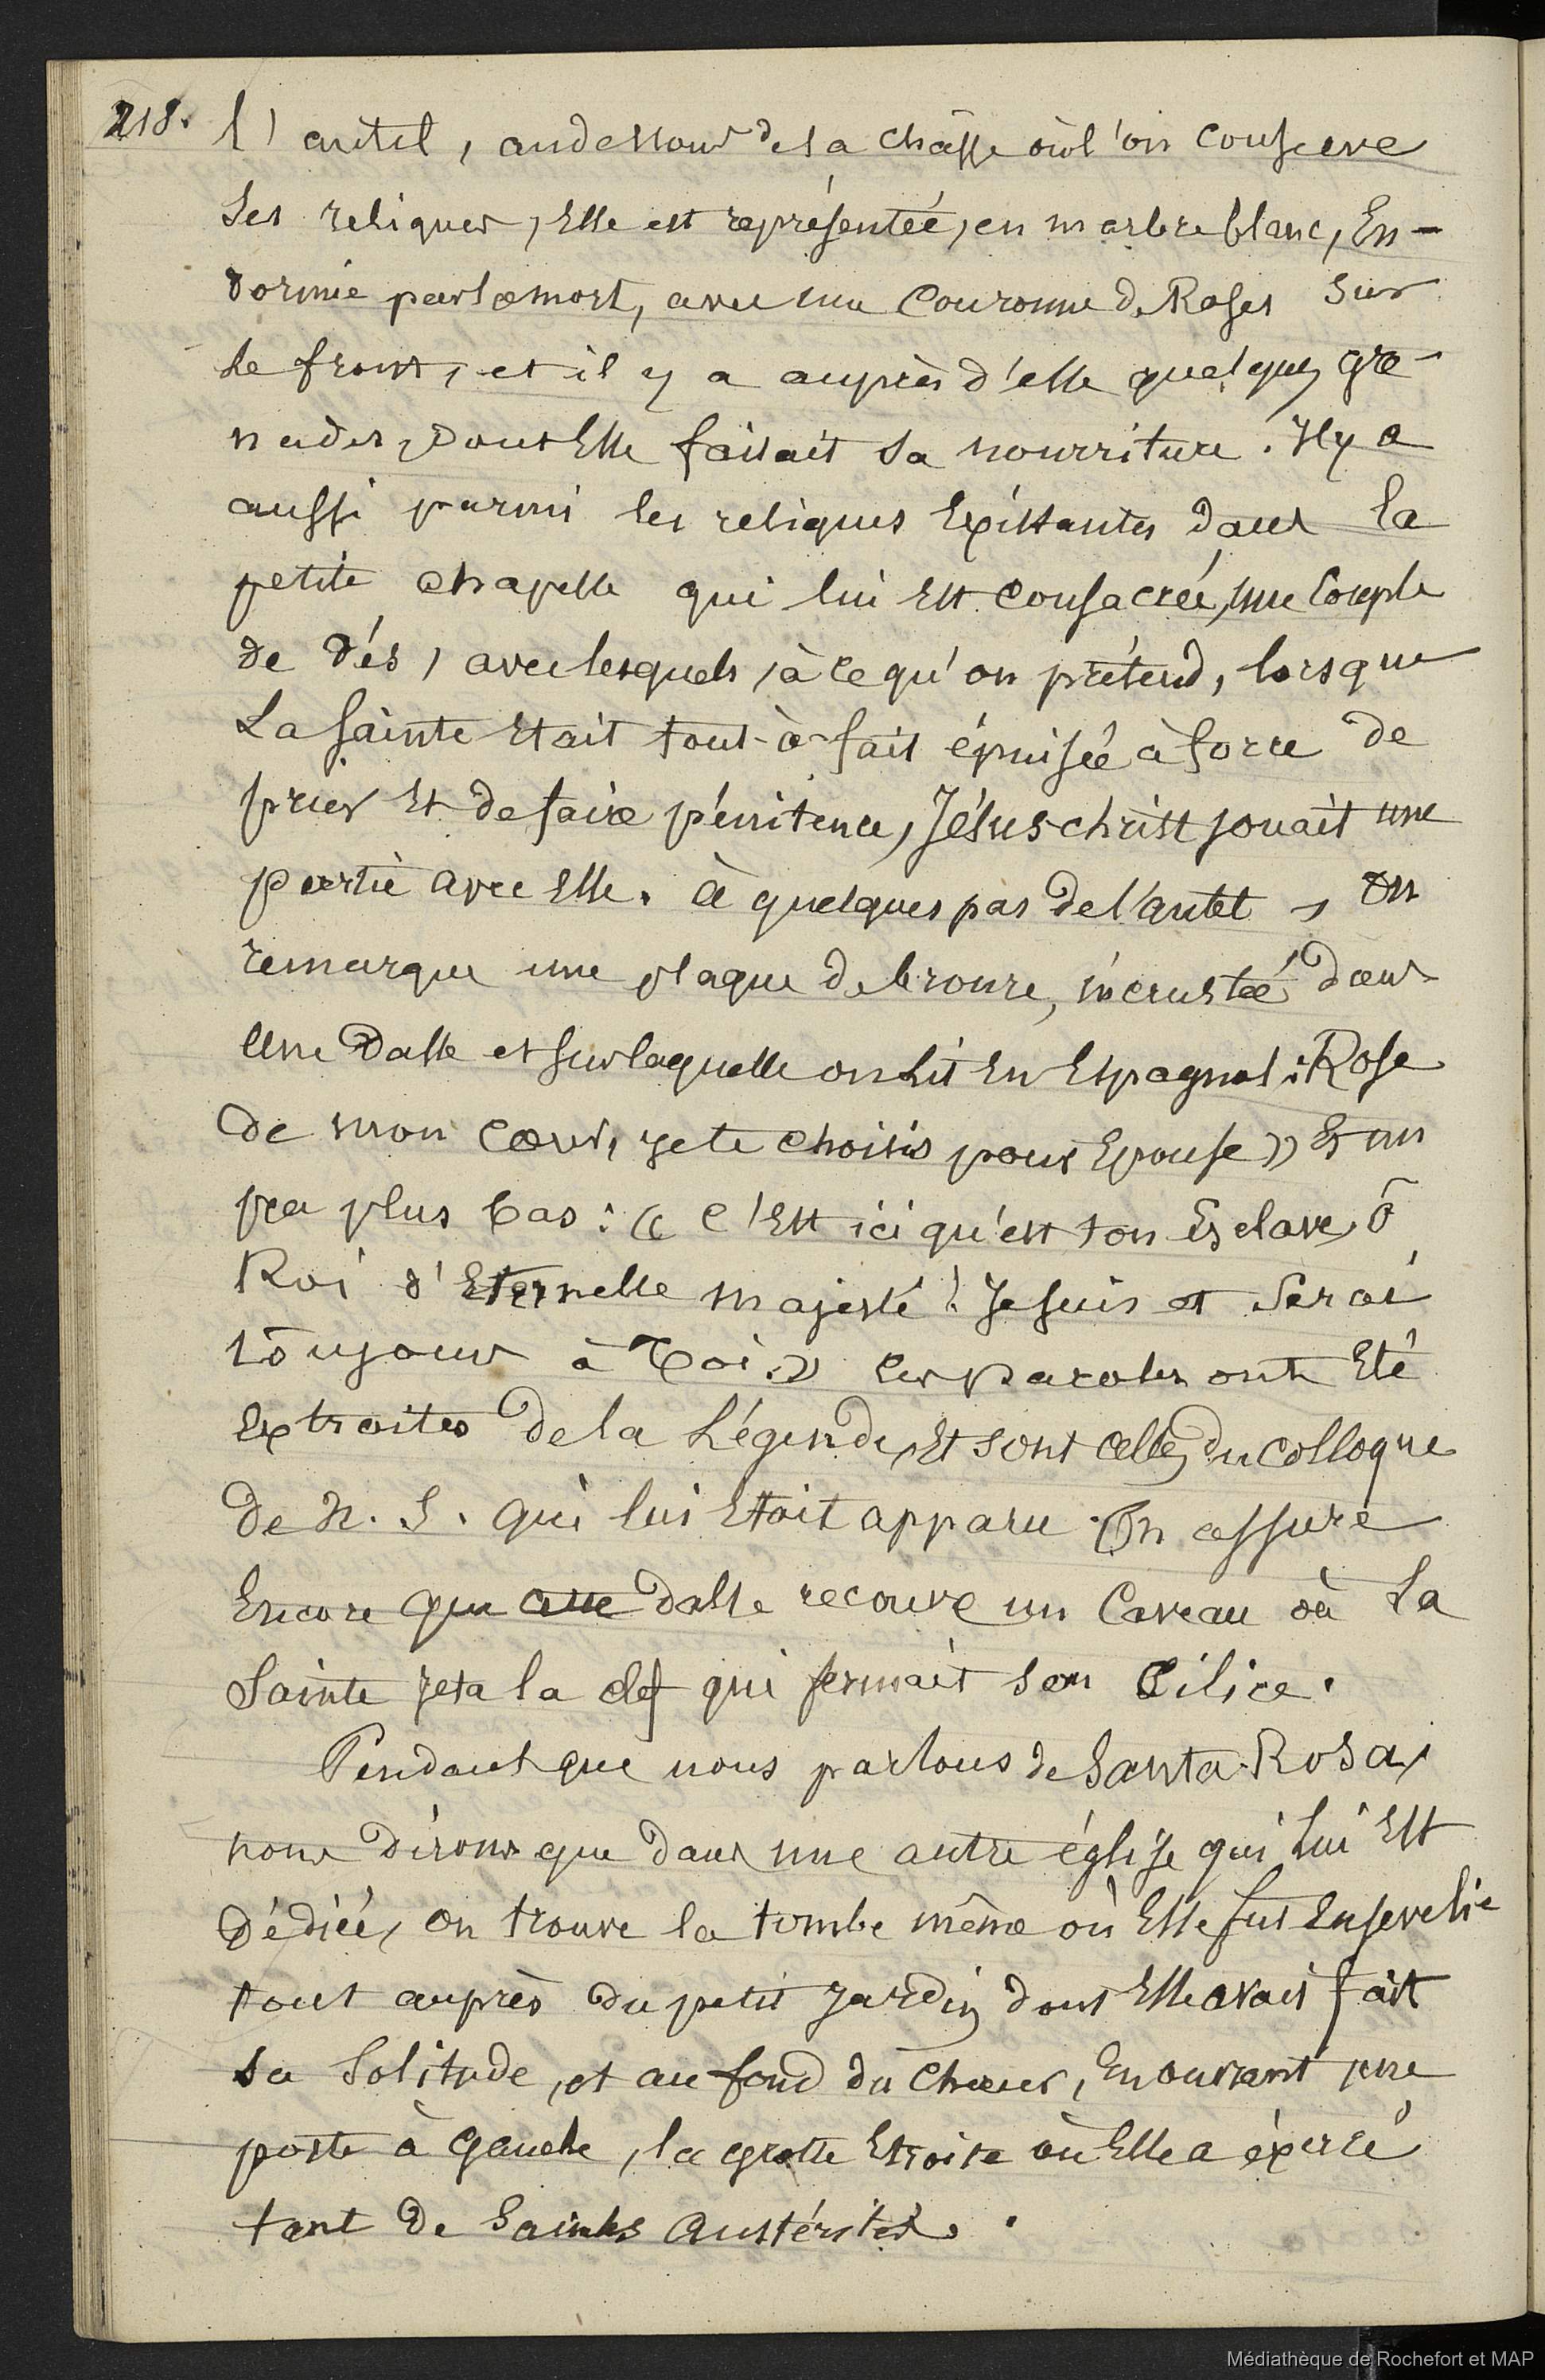 218.
l'autel, audessous de la châsse où l'on conserve
ses reliques, Elle est représentée, en marbre blanc, En-
dormie par la mort, avec une Couronne de Roses sur
le front, et il y a auprès d'elle quelques gre-
nades, dont Elle faisait sa nourriture. Il y a
aussi parmi les reliques Existantes dans la
petite chapelle qui lui Est consacrée, une Couple
de dés, avec lesquels, à ce qu'on prétend, lorsque
La Sainte Etait tout-à-fait épuisée à force de
prier Et de faire pénitence, Jésus christ jouait une
partie avec Elle. à quelques pas de l'autel, on
remarque une plaque de bronze, incrustée dans
Une Dalle et sur laquelle on lit En Espagnol: Rose
de mon Cœur, je te choisis pour Epouse » Et un
peu plus bas: « C'Est ici qu'est ton Esclave, ô
Roi d'Eternelle majesté! Je suis et Serai
toujours à Toi. » Ces Paroles ont Eté
Extraites de la Légende, Et sont celles du Colloque
de N. S. qui lui Etait apparu. On assure
Encore que cette dalle recouvre un Caveau où la
Sainte jeta la clef qui fermait son Cilice.
Pendant que nous parlons de Santa Rosa,
nous dirons que dans une autre église qui lui Est
Dédiée, on trouve la tombe même où Elle fut Ensevelie
tout auprès du petit Jardin dont Elle avait fait
sa Solitude, et au fond du Chœur, En ouvrant une
porte à gauche, la grotte Etroite où Elle a éxercé
tant de Saintes Austérités.
Médiathèque de Rochefort et MAP